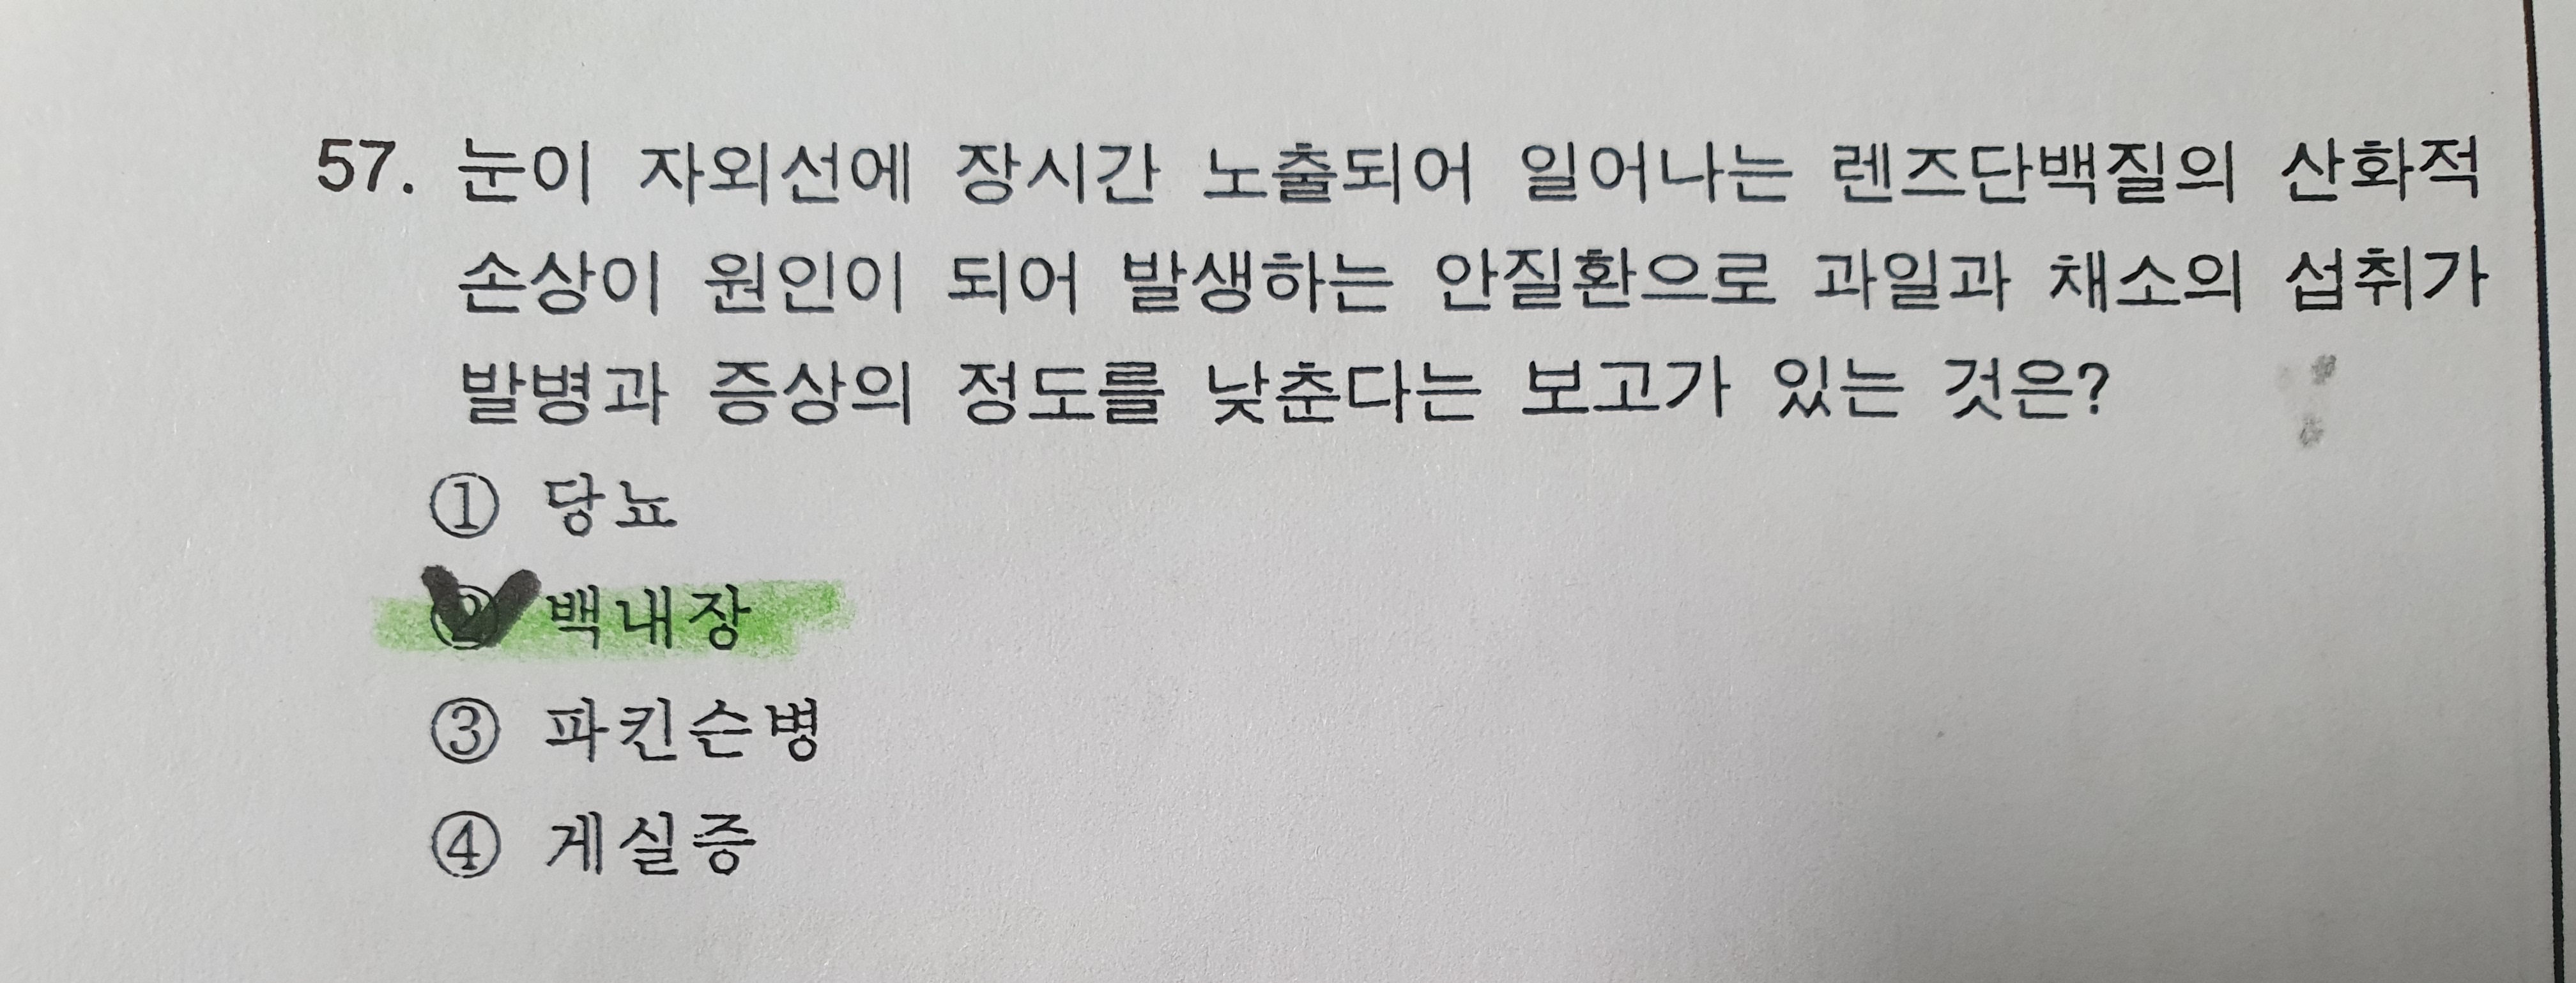 57. 눈이 자외선에 장시간 노출되어 일어나는 렌즈단백질의 산화적
손상이 원인이 되어 발생하는 안질환으로 과일과 채소의 섭취가
발병과 증상의 정도를 낮춘다는 보고가 있는 것은?
① 당뇨
② 백내장
③ 파킨슨병
④ 게실증